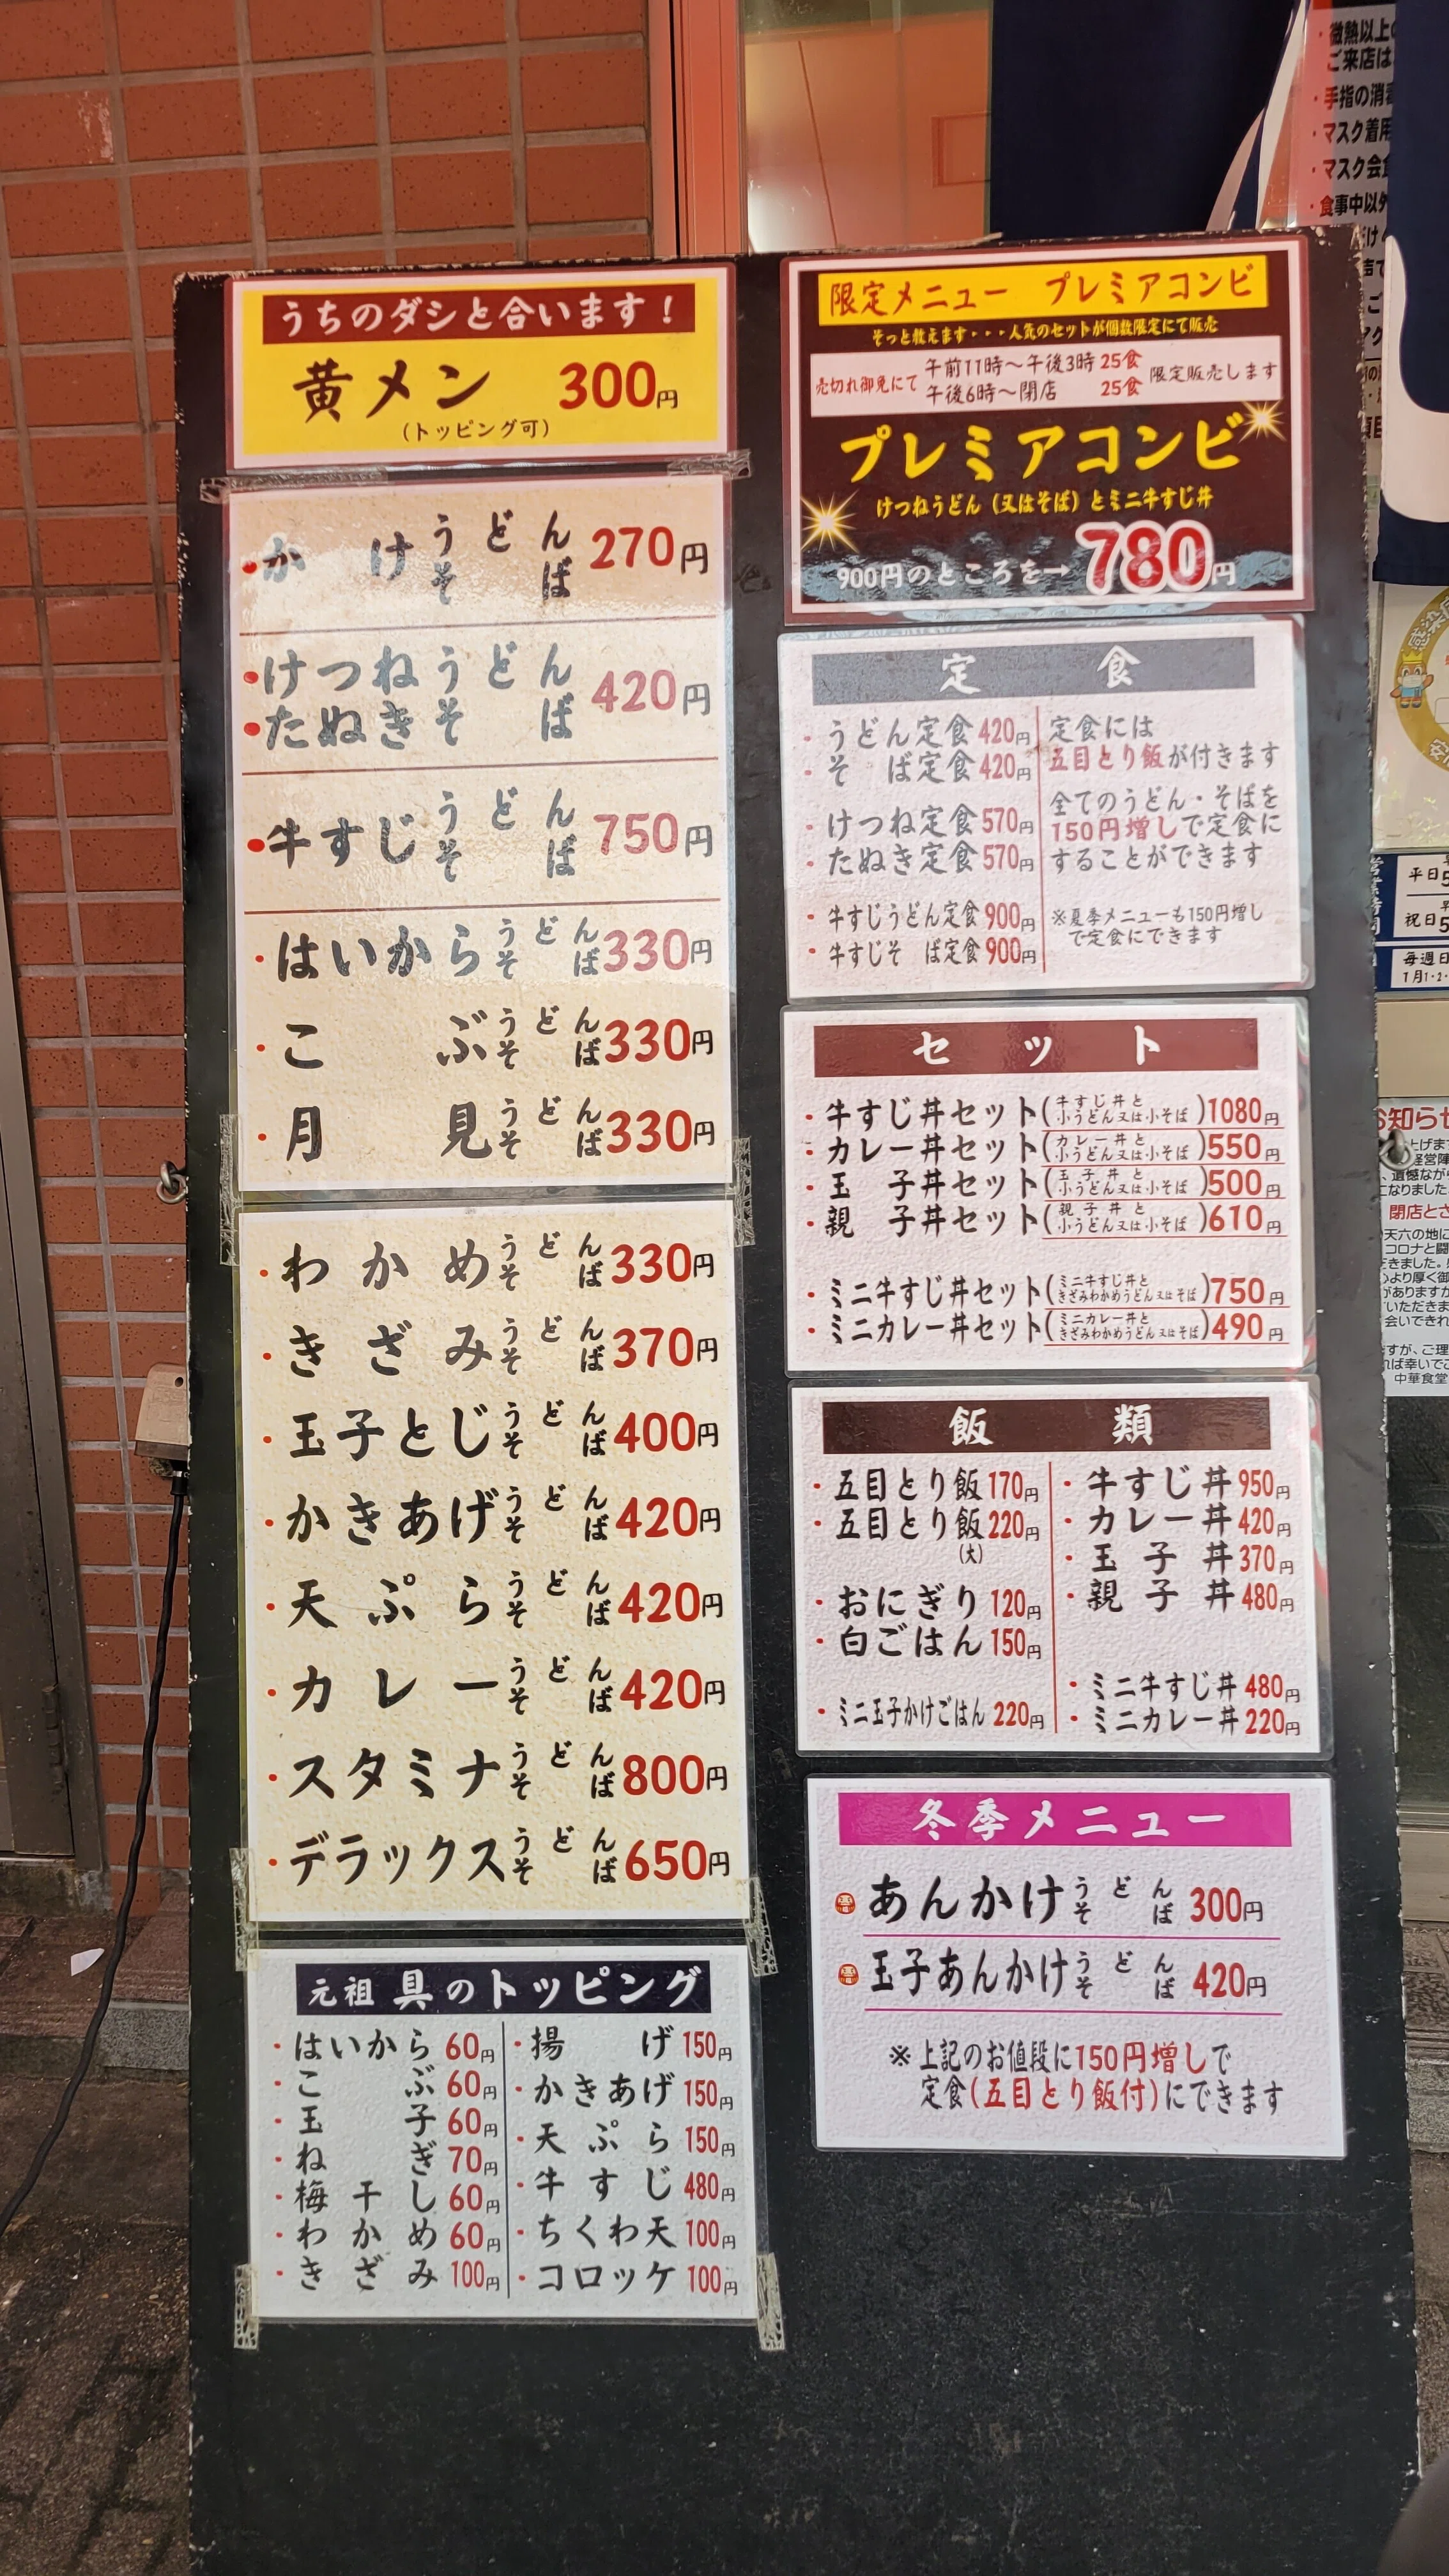 うちのダシと合います！
黄メン 300円
（トッピング可）
・かけうどん そば 270円
・けつねうどん
・たぬきそば 420円
・牛すじうどん そば 750円
・はいからうどん そば 330円
・こぶうどん そば 330円
・月見うどん そば 330円
・わかめうどん そば 330円
・きざみうどん そば 370円
・玉子とじうどん そば 400円
・かきあげうどん そば 420円
・天ぷらうどん そば 420円
・カレーうどん そば 420円
・スタミナうどん そば 800円
・デラックスうどん そば 650円
元祖 具のトッピング
・はいから 60円
・こぶ 60円
・玉子 60円
・ねぎ 70円
・梅干し 60円
・わかめ 60円
・きざみ 100円
・揚げ 150円
・かきあげ 150円
・天ぷら 150円
・牛すじ 480円
・ちくわ天 100円
・コロッケ 100円
限定メニュー プレミアコンビ
そっと教えます・・・人気のセットが個数限定にて販売
売切れ御免にて 午前11時〜午後3時 25食 限定販売します
午後6時〜閉店 25食
プレミアコンビ
けつねうどん（又はそば）とミニ牛すじ丼
900円のところを→780円
定食
・うどん定食 420円
・そば定食 420円
・けつね定食 570円
・たぬき定食 570円
・牛すじうどん定食 900円
・牛すじそば定食 900円
定食には
五目とり飯が付きます
全てのうどん・そばを
150円増しで定食に
することができます
※夏季メニューも150円増し
で定食にできます
セット
・牛すじ丼セット（牛すじ丼と小うどん又は小そば）1080円
・カレー丼セット（カレー丼と小うどん又は小そば）550円
・玉子丼セット（玉子丼と小うどん又は小そば）500円
・親子丼セット（親子丼と小うどん又は小そば）610円
・ミニ牛すじ丼セット（ミニ牛すじ丼ときざみわかめうどん又はそば）750円
・ミニカレー丼セット（ミニカレー丼ときざみわかめうどん又はそば）490円
飯類
・五目とり飯 170円
・五目とり飯 220円
（大）
・おにぎり 120円
・白ごはん 150円
・ミニ玉子かけごはん 220円
・牛すじ丼 950円
・カレー丼 420円
・玉子丼 370円
・親子丼 480円
・ミニ牛すじ丼 480円
・ミニカレー丼 220円
冬季メニュー
あんかけうどん そば 300円
玉子あんかけうどん そば 420円
※上記のお値段に150円増しで
定食（五目とり飯付）にできます
・微熱以上
ご来店は
・手指の消毒
・マスク着用
・マスク会食
・食事中以外
平日
祝日
お知らせ
閉店
中華食堂